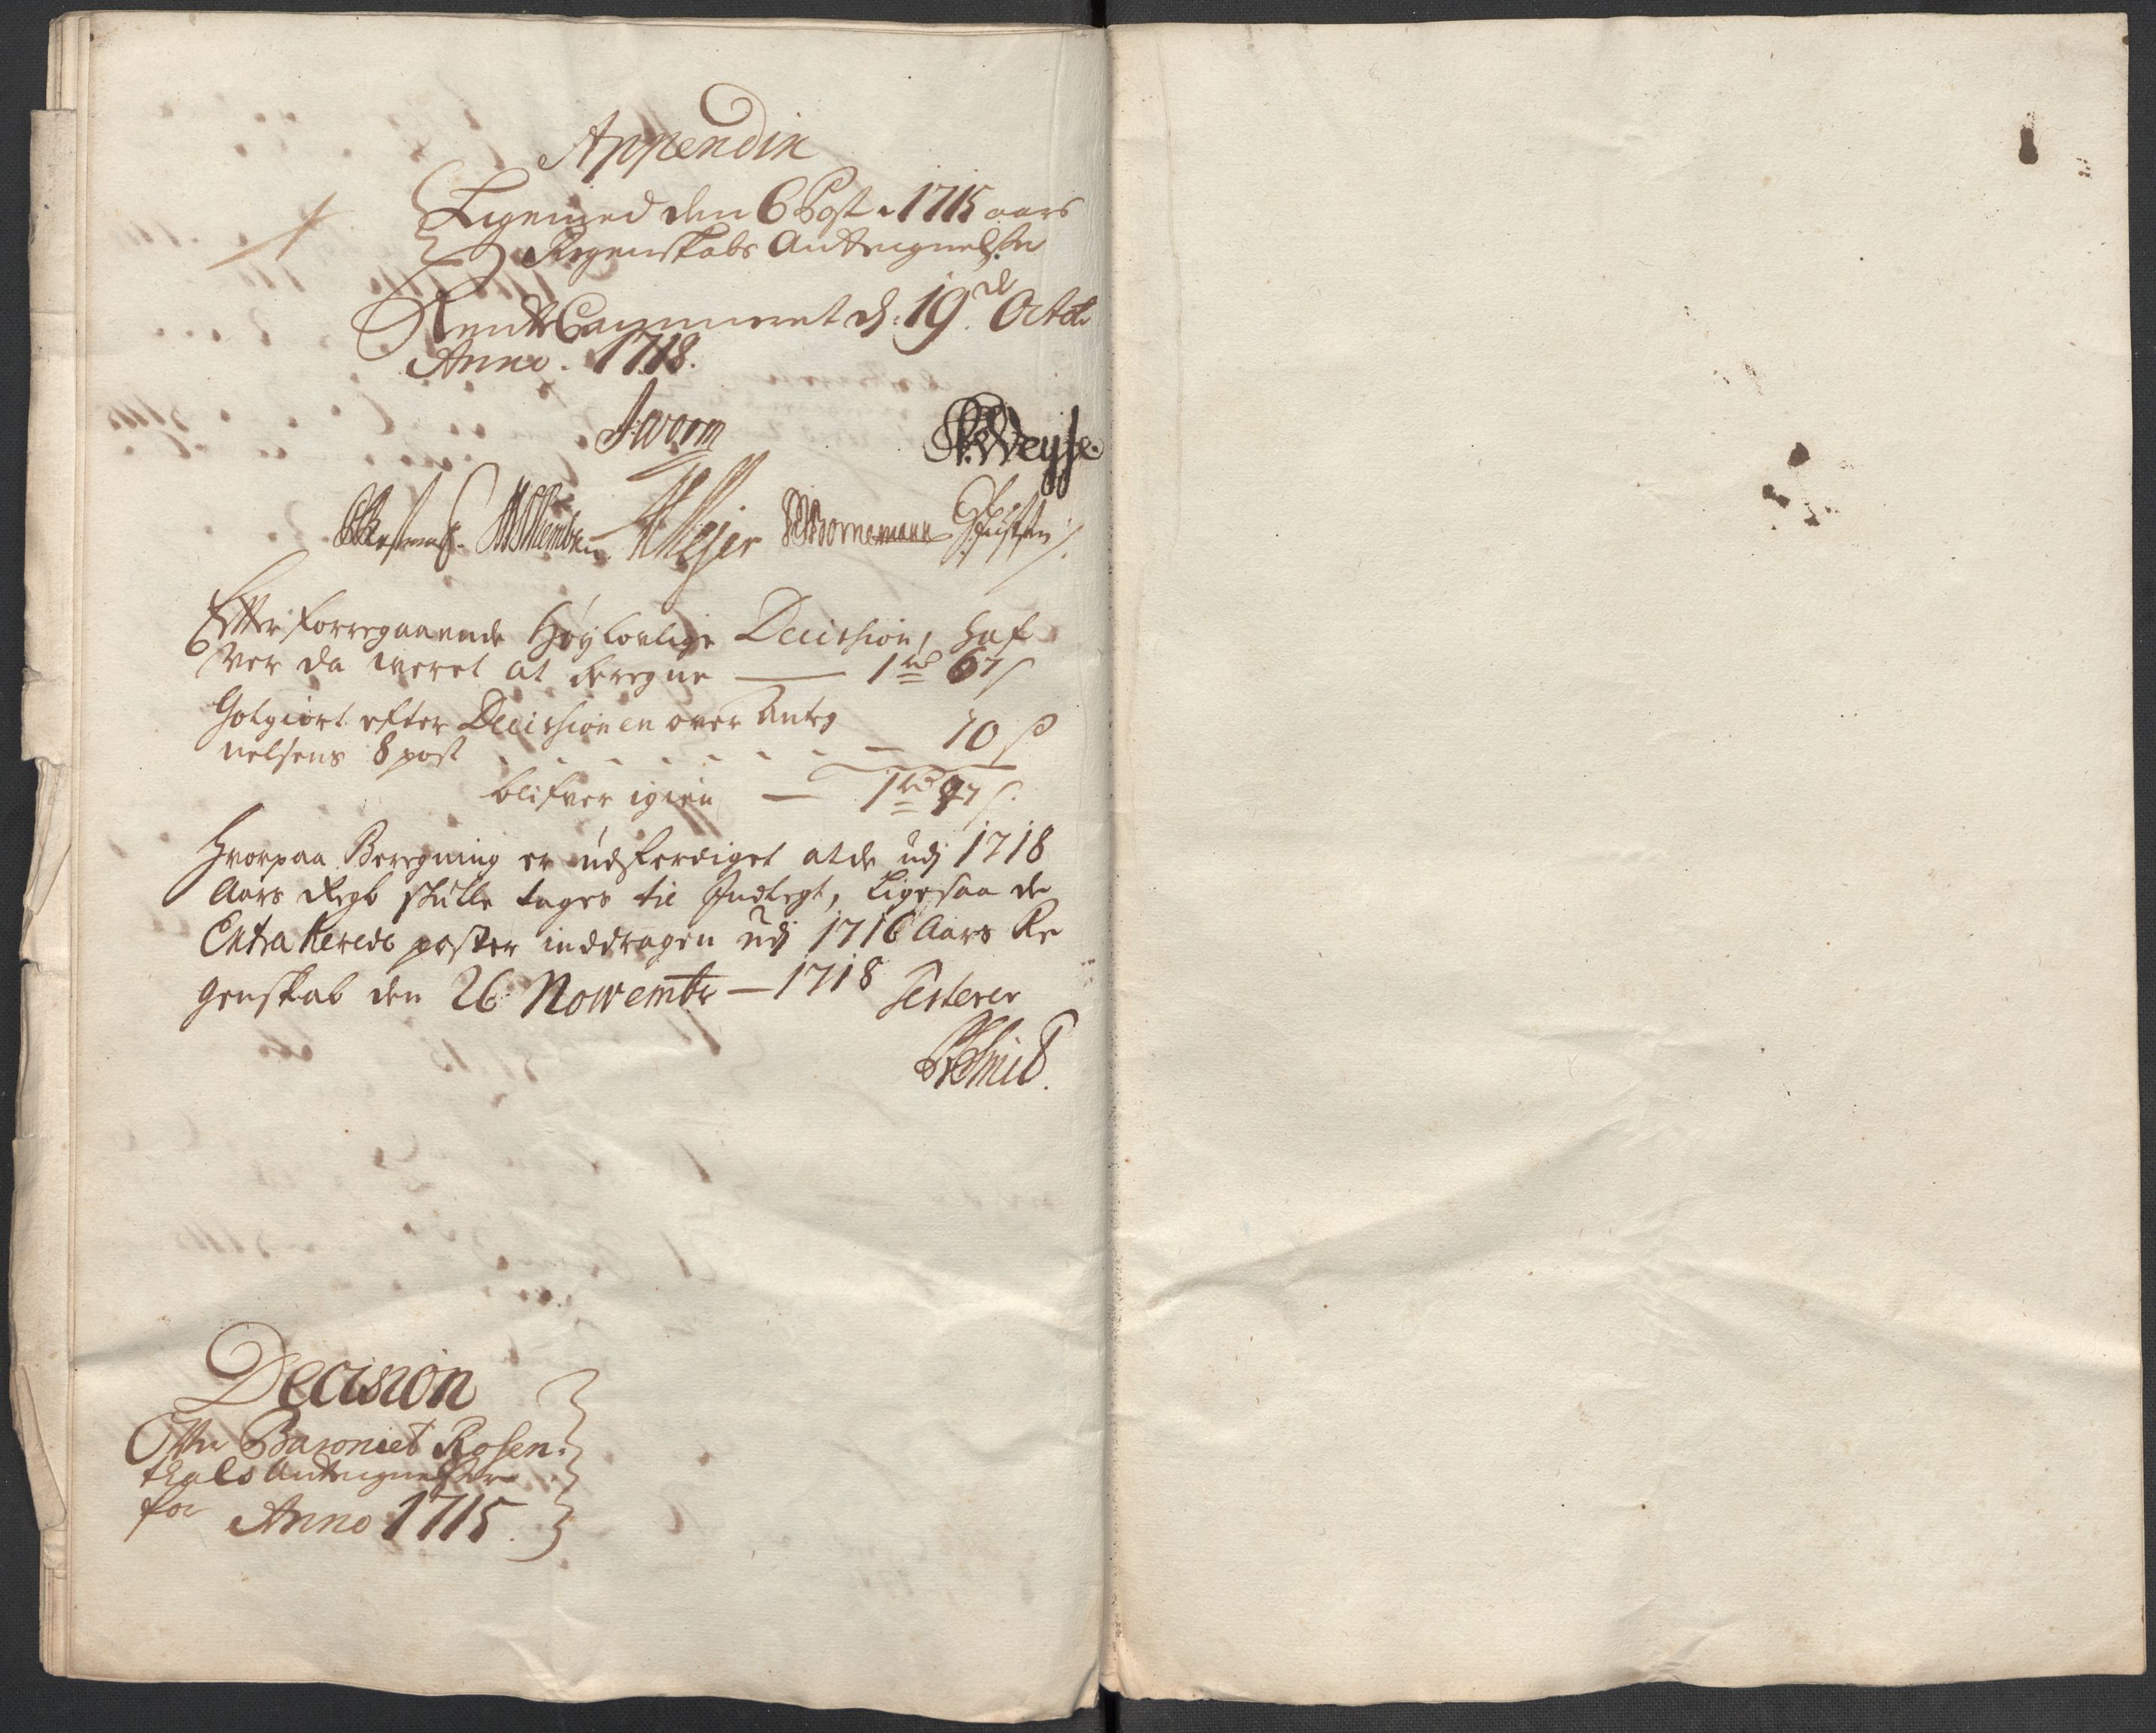 Appendix
Ligemed den 6 Post i 1715 aars
Regenskabs Antegnelser
Rente Cammeret d: 19de Octobr
Anno. 1718.
J Worm
Weyse
Meyer Bornemann
Efter forregaaende Høylovlige Decision, haf
ver da veret at beregne — 1 rd 67 s
Gotgiort efter Decisionen over Anteg
nelsens 8 post - - - - - - 70 s
blifver igien — 1 rd 97 s
Hvorpaa Beregning er udferdiget at de udj 1718
Aars Regb skulle tages til Indtegt, Ligesaa de
Extraherede poster inddragen udj 1716 Aars Re
genskab den 26 Novembr — 1718 Testerer
Smid
Decision
Ofver Baroniet Rosen-
thals Antegnelser
for Anno 1715